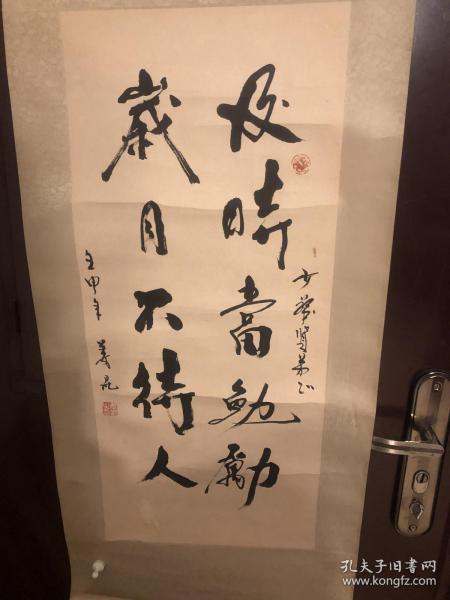 及時當勉勵
歲月不待人
壬申年
孔夫子旧书网
www.kongfz.com